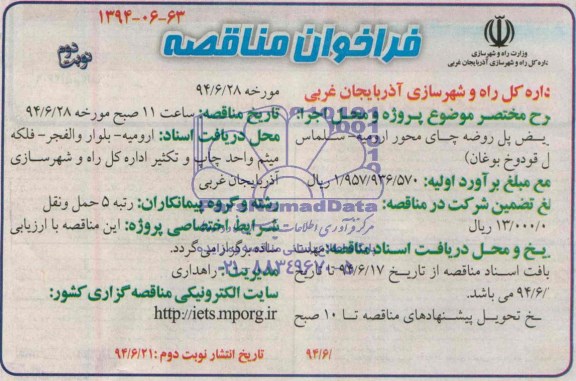 ۱۳۹۴-۰۶-۶۳
فراخوان مناقصه
نوبت دوم
وزارت راه و شهرسازی
داره کل راه و شهرسازی آذربایجان غربی
داره کل راه و شهرسازی آذربایجان غربی
رح مختصر موضوع پروژه و محل اجرا:
یض پل روضه چای محور ارومیه- سلماس
ل قودوخ بوغان)
مع مبلغ برآورد اولیه: ۱/۹۵۷/۹۳۶/۵۷۰ ریال
لغ تضمین شرکت در مناقصه:
۱۳/۰۰۰/۰ ریال
یخ و محل دریافت اسناد مناقصه: مهلت
یافت اسناد مناقصه از تاریخ ۹۴/۶/۱۷ تا تاریخ
۹۴/۶/ می باشد.
یخ تحویل پیشنهادهای مناقصه تا ۱۰ صبح
مورخه ۹۴/۶/۲۸
تاریخ مناقصه: ساعت ۱۱ صبح مورخه ۹۴/۶/۲۸
محل دریافت اسناد: ارومیه- بلوار والفجر- فلکه
میثم واحد چاپ و تکثیر اداره کل راه و شهرسازی
آذربایجان غربی
رشته و گروه پیمانکاران: رتبه ۵ حمل ونقل
شرایط اختصاصی پروژه: این مناقصه با ارزیابی
ساده برگزار می گردد.
مدیریت: راهداری
سایت الکترونیکی مناقصه گزاری کشور:
http://iets.mporg.ir
۹۴/۶/
تاریخ انتشار نوبت دوم: ۹۴/۶/۲۱
ParsNamadData
مرکز فرآوری اطلاعات
۰۲۱-۸۸۳۴۹۶۷۰